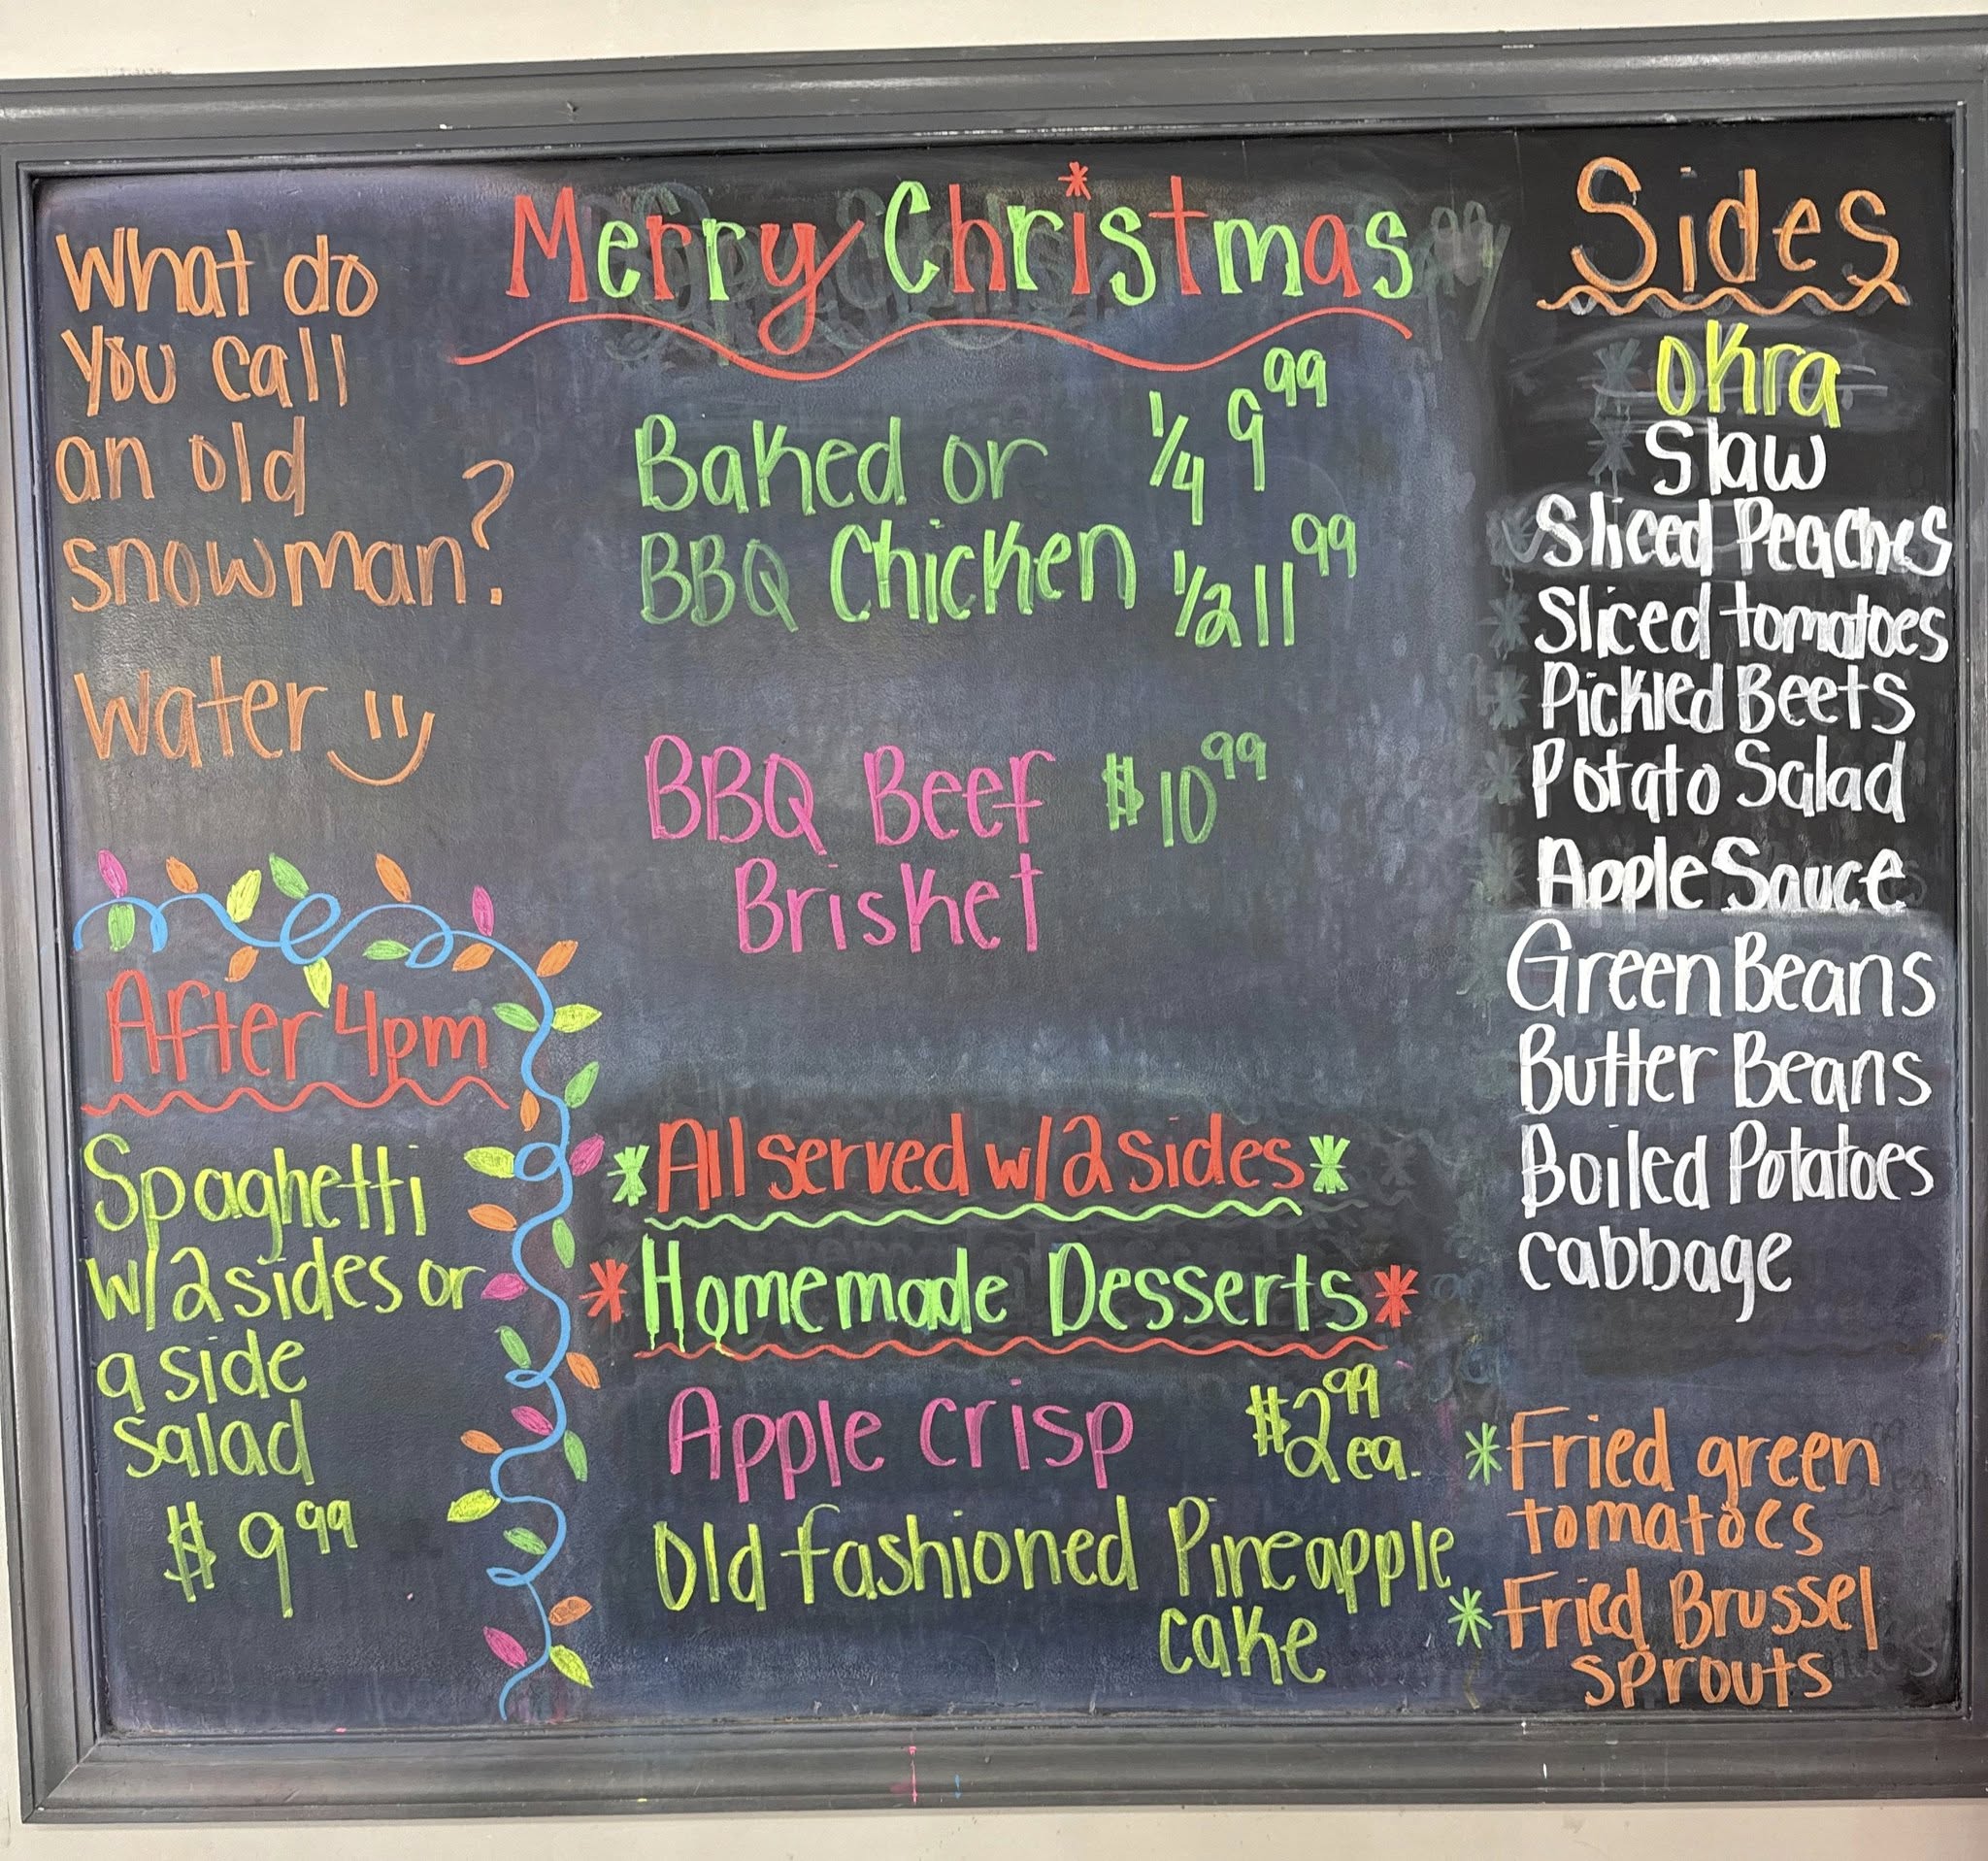 Merry Christmas
What do
you call
an old
snowman?
Water
After 4pm
Spaghetti
w/2 sides or
a side
salad
$9.99
Baked or 1/4 9.99
BBQ Chicken 1/2 11.99
BBQ Beef $10.99
Brisket
All served w/2 sides
Homemade Desserts
Apple crisp $2.99 ea.
Old fashioned Pineapple
cake
Sides
okra
Slaw
Sliced Peaches
Sliced tomatoes
Pickled Beets
Potato Salad
Apple Sauce
Green Beans
Butter Beans
Boiled Potatoes
cabbage
*Fried green
tomatoes
*Fried Brussel
sprouts